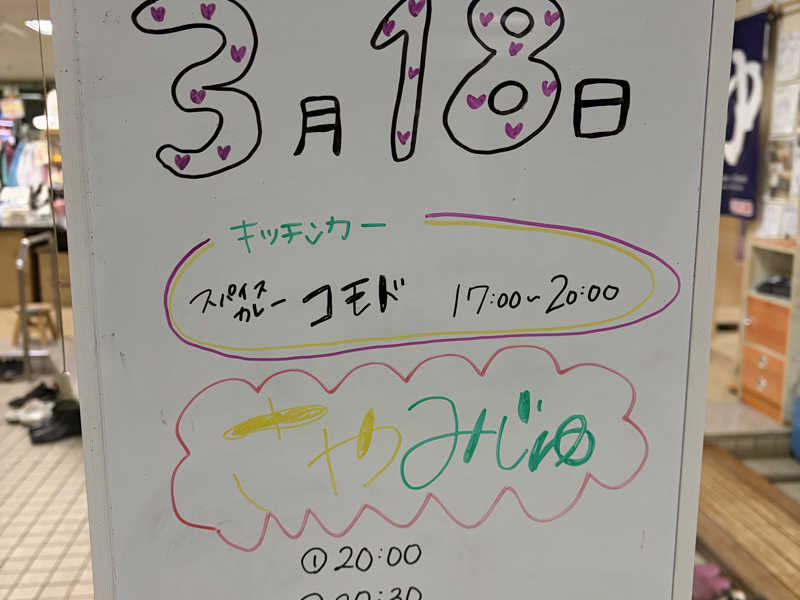 3月18日
キッチンカー
スパイスカレー コモド 17:00~20:00
さやみじゅ
①20:00
②20:30
ゆ